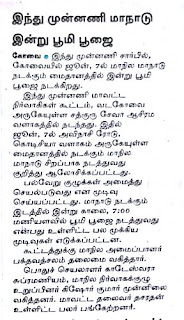 இந்து முன்னணி மாநாடு
இன்று பூமி பூஜை
கோவை இந்து முன்னணி சார்பில்,
கோவையில் ஜூன், 7ல் மாநில மாநாடு
நடக்கும் மைதானத்தில் இன்று பூமி
பூஜை நடக்கிறது.
இந்து முன்னணி மாவட்ட
நிர்வாகிகள் கூட்டம், வடகோவை
அருகேயுள்ள சத்குரு சேவா ஆசிரம
வளாகத்தில் நடந்தது. இதில்
ஜூன், 7ல் அவிநாசி ரோடு,
கொடிசியா வளாகம் அருகேயுள்ள
மைதானத்தில் நடக்கும் மாநில
மாநாடு சிறப்பாக நடத்துவது
குறித்து ஆலோசிக்கப்பட்டது.
பல்வேறு குழுக்கள் அமைத்து
செயல்படுவது என முடிவு
செய்யப்பட்டது. மாநாடு நடக்கும்
இடத்தில் இன்று காலை, 7:00
மணியளவில் பூமி பூஜை நடத்துவது
என்பது உள்ளிட்ட பல முக்கிய
முடிவுகள் எடுக்கப்பட்டன.
கூட்டத்திற்கு மாநில அமைப்பாளர்
பக்தவத்சலம் தலைமை வகித்தார்.
பொதுச் செயலாளர் காடேஸ்வரா
சுப்ரமணியம், மாநில நிர்வாகக்குழு
உறுப்பினர் கிஷோர் குமார் முன்னிலை
வகித்தனர். மாவட்ட தலைவர் தசரதன்
உள்ளிட்ட பலர் பங்கேற்றனர்.